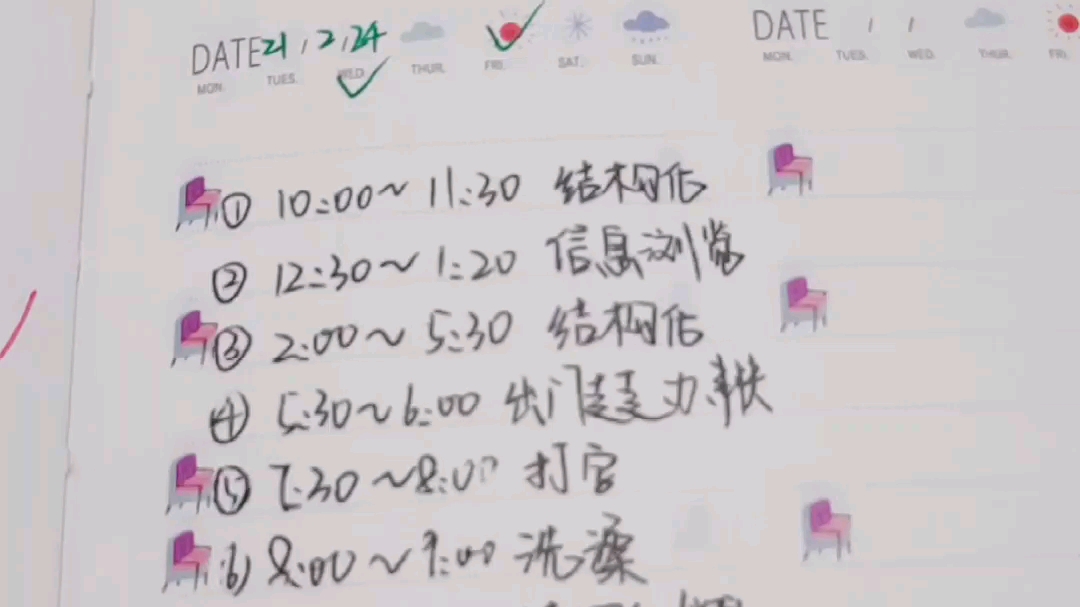 DATE 21 / 2 / 24
MON. TUES. WED. THUR. FRI. SAT. SUN.
① 10:00~11:30 结构化
② 12:30~1:20 信息浏览
③ 2:00~5:30 结构化
④ 5:30~6:00 出门
⑤ 7:30~8:00 打字
⑥ 8:00~9:00 洗澡
DATE / /
MON. TUES. WED. THUR. FRI.